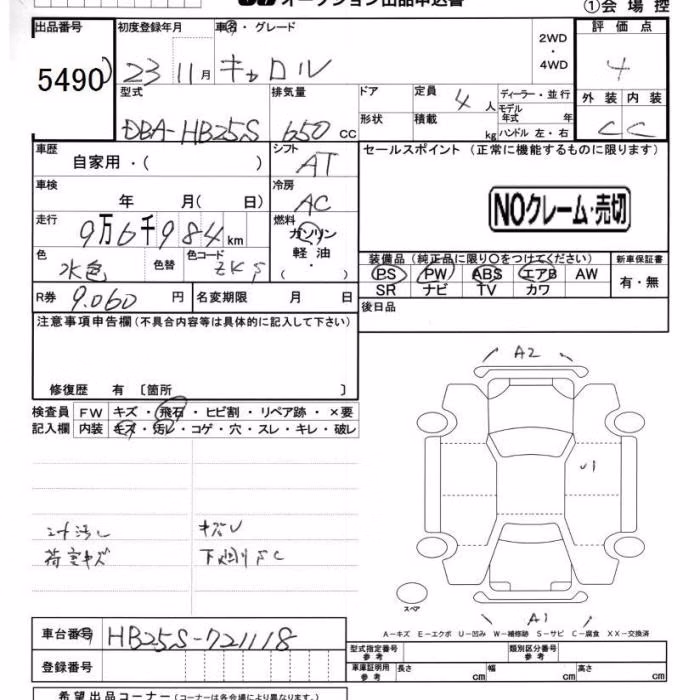 オークション出品申込書 ①会場控
出品番号 初度登録年月 車名・グレード 2WD・4WD 評価点
5490 23 11月 キャロル 4
型式 排気量 ドア 定員 4人 ディーラー・並行 外装 内装
形状 積載 kg モデル年式 年 ハンドル 左・右
DBA-HB25S 650 cc C C
車歴 自家用・( ) シフト AT セールスポイント (正常に機能するものに限ります)
車検 年 月( 日) 冷房 AC
NOクレーム・売切
走行 9万6千984km 燃料 ガソリン・軽油・( )
色 水色 色替 色コード ZKS
装備品 (純正品に限り〇をつけてください) 新車保証書
PS PW ABS エアB AW 有・無
SR ナビ TV カワ
R券 9.060円 名変期限 月 日 後日品
注意事項申告欄 (不具合内容等は具体的に記入して下さい)
修復歴 有 〔箇所 〕
検査員 FW キズ・飛石・ヒビ割・リペア跡・×要
記入欄 内装 キズ・汚レ・コゲ・穴・スレ・キレ・破レ
A2
U1
シート汚レ キズU
荷室キズ 下廻りSC
スペア
A1
A−キズ E−エクボ U−凹み W−補修跡 S−サビ C−腐食 XX−交換済
車台番号 HB25S-721118
型式指定番号 参考 類別区分番号 参考
登録番号
車庫証明用 参考 長さ cm 幅 cm 高さ cm
希望出品コーナー (コーナーは各会場により異なります。)